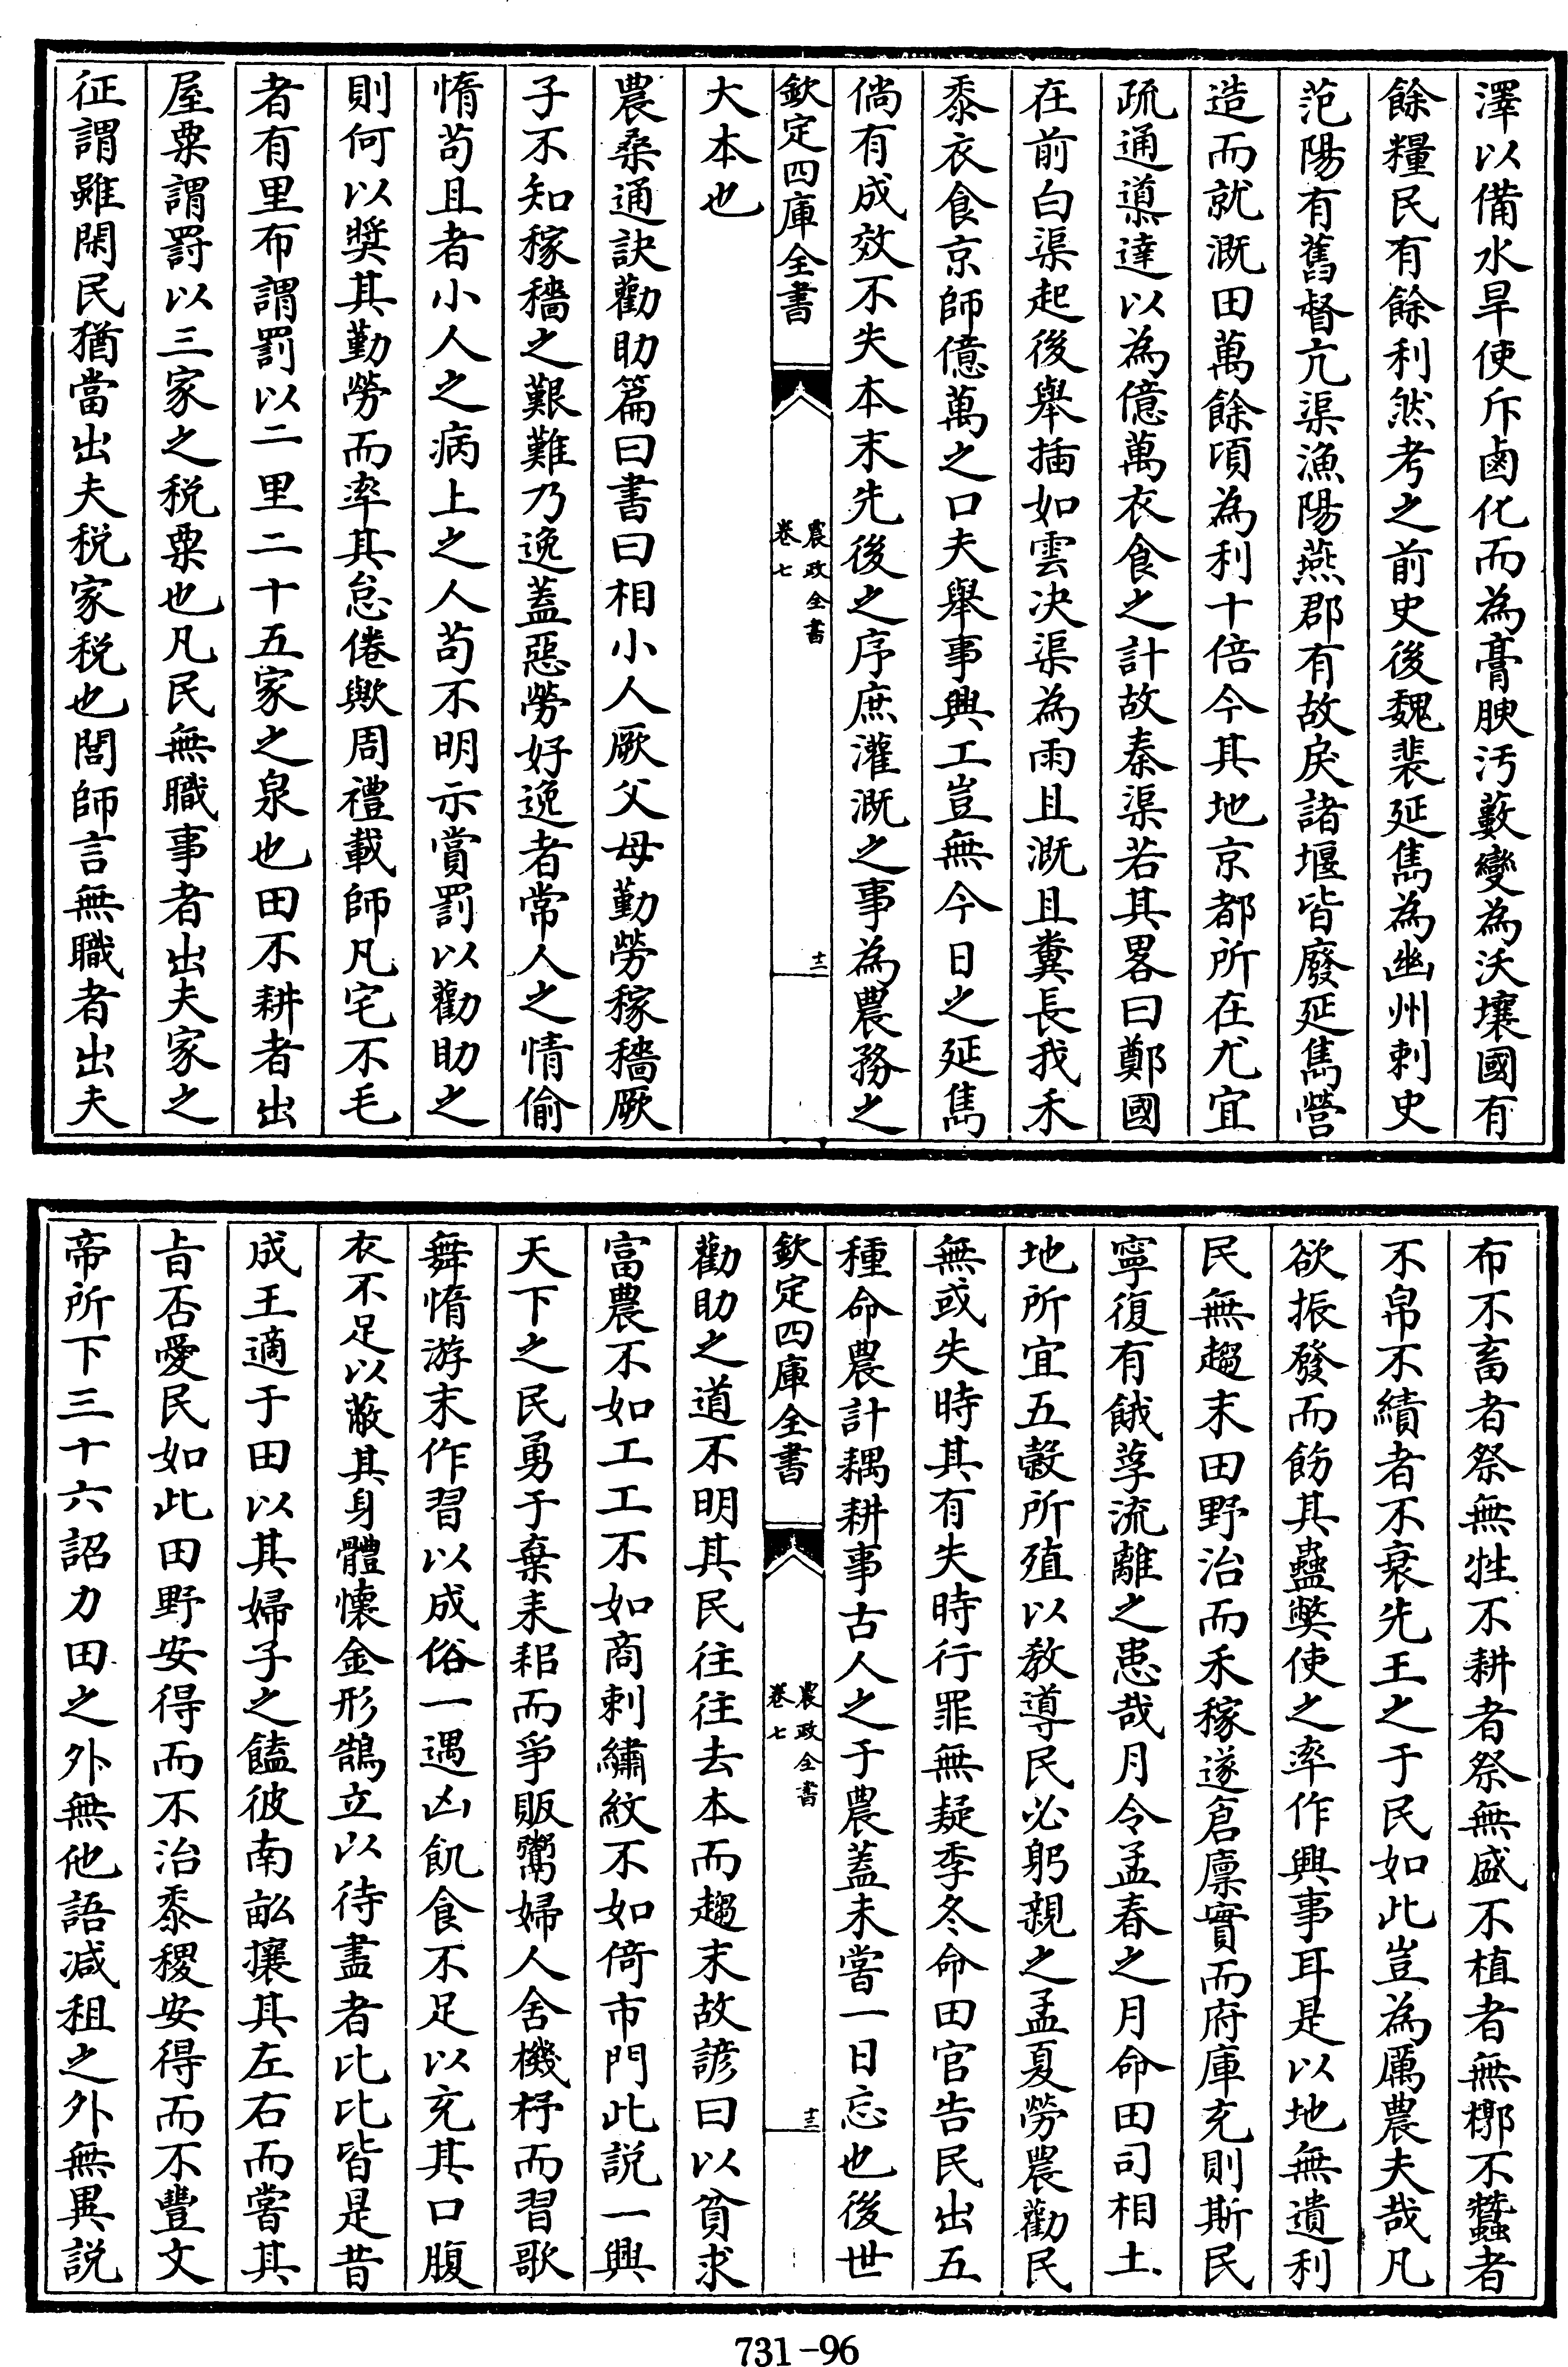 澤以備水旱使斥鹵化而為膏腴汚藪變為沃壤國有
餘糧民有餘利然考之前史後魏裴延雋為幽州刺史
范陽有舊督亢渠漁陽燕郡有故戾諸堰皆廢延雋營
造而就溉田萬餘頃為利十倍今其地京都所在尤宜
疏通導達以為億萬衣食之計故秦渠若其畧曰鄭國
在前白渠起後舉插如雲决渠為雨且溉且糞長我禾
黍衣食京師億萬之口夫舉事興工豈無今日之延雋
倘有成效不失本末先後之序庶灌溉之事為農務之
欽定四庫全書
農政全書
卷七
十二
大本也
農桑通訣勸助篇曰書曰相小人厥父母勤勞稼穡厥
子不知稼穡之艱難乃逸蓋惡勞好逸者常人之情偷
惰苟且者小人之病上之人苟不明示賞罰以勸助之
則何以奬其勤勞而率其怠倦歟周禮載師凡宅不毛
者有里布謂罰以二里二十五家之泉也田不耕者出
屋粟謂罸以三家之税粟也凡民無職事者出夫家之
征謂雖閑民猶當出夫税家税也閭師言無職者出夫
布不畜者祭無牲不耕者祭無盛不植者無槨不蠶者
不帛不績者不衰先王之于民如此豈為厲農夫哉凡
欲振發而飭其蠱獘使之率作興事耳是以地無遺利
民無趨末田野治而禾稼遂倉廩實而府庫充則斯民
寧復有餓莩流離之患哉月令孟春之月命田司相土
地所宜五糓所殖以教導民必躬親之孟夏勞農勸民
無或失時其有失時行罪無疑季冬命田官告民出五
種命農計耦耕事古人之于農蓋未嘗一日忘也後世
欽定四庫全書
農政全書
卷七
十三
勸助之道不明其民往往去本而趨末故諺曰以貧求
富農不如工工不如商刺繡紋不如倚市門此説一興
天下之民勇于棄耒耜而爭販鬻婦人舍機杼而習歌
舞惰游末作習以成俗一遇凶飢食不足以充其口腹
衣不足以蔽其身體懷金形鵠立以待盡者比比皆是昔
成王適于田以其婦子之饁彼南畝攘其左右而嘗其
旨否愛民如此田野安得而不治黍稷安得而不豐文
帝所下三十六詔力田之外無他語减租之外無異説
731-96